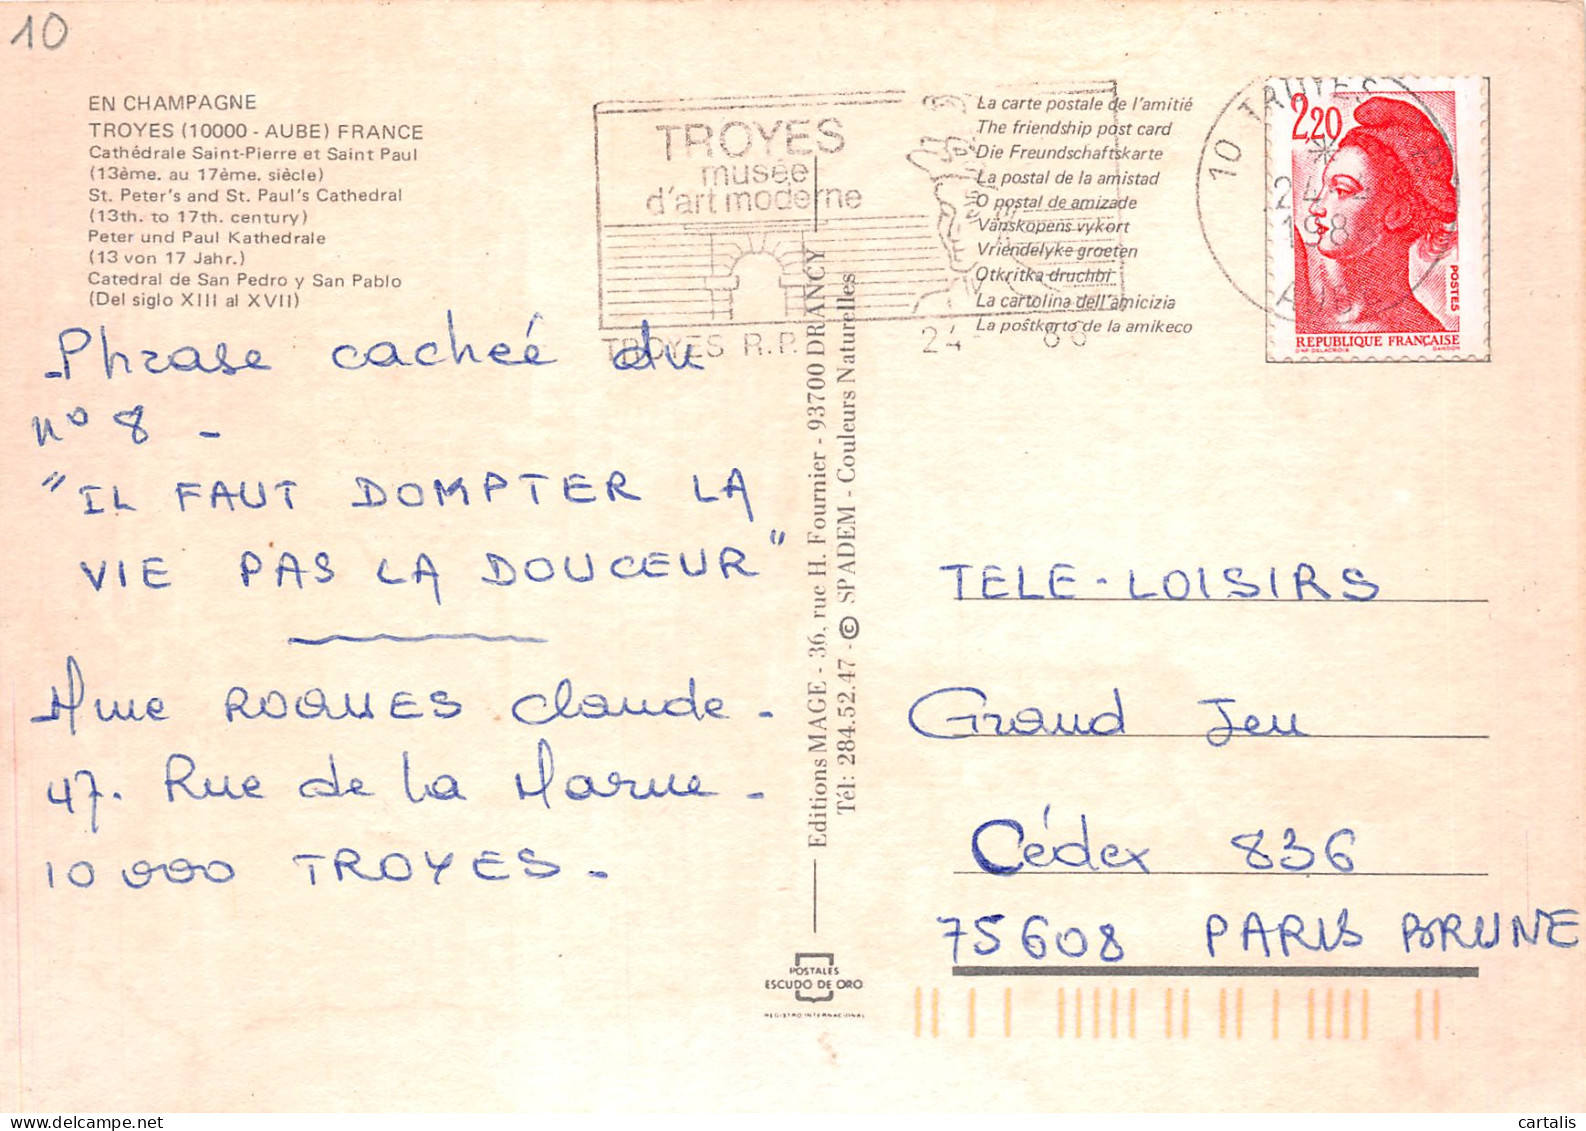 10
EN CHAMPAGNE
TROYES (10000 - AUBE) FRANCE
Cathédrale Saint-Pierre et Saint Paul
(13ème. au 17ème. siècle)
St. Peter's and St. Paul's Cathedral
(13th. to 17th. century)
Peter und Paul Kathedrale
(13 von 17 Jahr.)
Catedral de San Pedro y San Pablo
(Del siglo XIII al XVII)
TROYES
musée
d'art moderne
TROYES R.P.
La carte postale de l'amitié
The friendship post card
Die Freundschaftskarte
La postal de la amistad
O postal de amizade
Vänskopens vykort
Vriendelyke groeten
Otkritka druchbi
La cartolina dell'amicizia
La poŝtkarto de la amikeco
10 TROYES
2,20
POSTES
REPUBLIQUE FRANÇAISE
D'AP. DELACROIX GANDON
Phrase cacheé du
n° 8 -
"IL FAUT DOMPTER LA
VIE PAS LA DOUCEUR"
Mme ROQUES Claude -
47. Rue de la Marne -
10 000 TROYES -
Editions MAGE - 36, rue H. Fournier - 93700 DRANCY
Tél: 284.52.47 - © SPADEM - Couleurs Naturelles
POSTALES
ESCUDO DE ORO
REGISTRO INTERNACIONAL
TELE-LOISIRS
Grand Jeu
Cédex 836
75608 PARIS BRUNE
cartalis